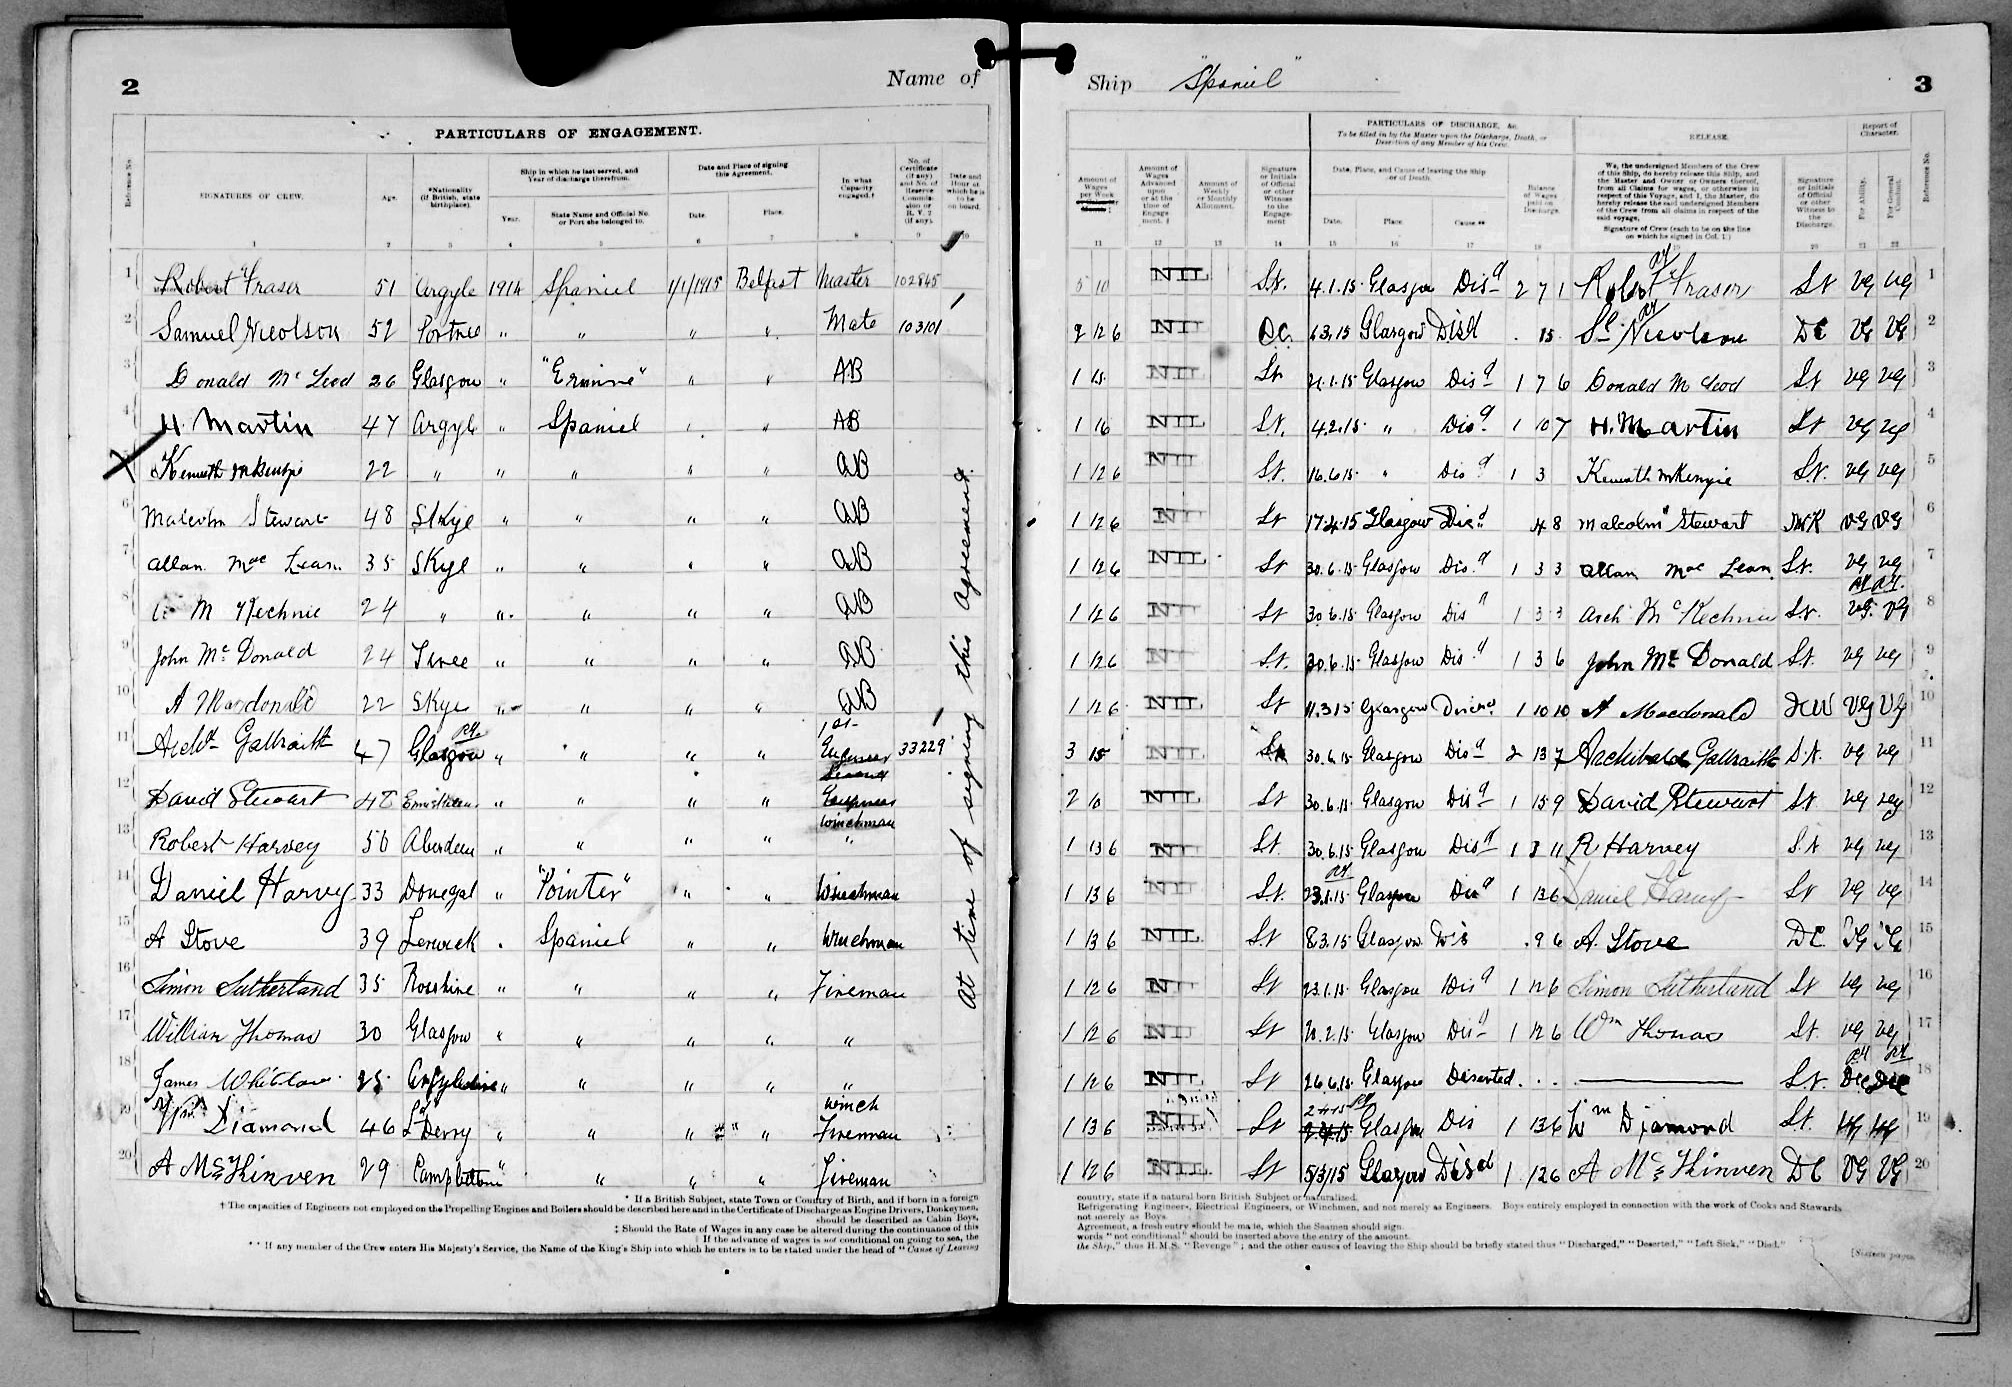 2
Name of
PARTICULARS OF ENGAGEMENT.
Reference No.
SIGNATURES OF CREW.
Age.
*Nationality (if British, state birthplace).
Ship in which he last served, and Year of discharge therefrom.
Year.
State Name and Official No. or Port she belonged to.
Date and Place of signing this Agreement.
Date.
Place.
In what Capacity engaged.†
No. of Certificate (if any) and No. of Reserve Commission or R.V.2 (if any).
Date and Hour at which he is to be on board.
1 2 3 4 5 6 7 8 9 10
1 Robert Fraser 51 Argyle 1914 Spaniel 1/1/1915 Belfast Master 102845
2 Samuel Nicolson 52 Portree " " " " Mate 103101
3 Donald Mc Leod 26 Glasgow " "Ermine" " " AB
4 H. Martin 47 Argyle " Spaniel " " AB
Kenneth McKenzie 22 " " " " " AB
6 Malcolm Stewart 48 Skye " " " " AB
7 Allan Mac Lean 35 Skye " " " " AB
8 M Kechnie 24 " " " " " AB
9 John Mc Donald 24 Tiree " " " " AB
10 A Macdonald 22 Skye " " " " AB
11 Archd Galbraith 47 Glasgow " " " " 1st Engineer 33229
12 David Stewart " " " " Second Engineer
13 Robert Harvey 56 Aberdeen " " " " Winchman "
14 Daniel Harvey 33 Donegal " "Pointer" " " Winchman
15 A Stove 39 Lerwick " Spaniel " " Winchman
16 Simon Sutherland 35 Rosshire " " " " Fireman
17 William Thomas 30 Glasgow " " " " "
18 James Whitelaw 25 Argyleshire " " " " "
19 Wm Diamond 46 L'Derry " " " " Winch Fireman
20 A McKhinven 29 Campbeltown " " " " Fireman
At time of signing this Agreement.
* If a British Subject, state Town or Country of Birth, and if born in a foreign
† The capacities of Engineers not employed on the Propelling Engines and Boilers should be described here and in the Certificate of Discharge as Engine Drivers, Donkeymen,
should be described as Cabin Boys,
‡ Should the Rate of Wages in any case be altered during the continuance of this
‖ If the advance of wages is not conditional on going to sea, the
** If any member of the Crew enters His Majesty's Service, the Name of the King's Ship into which he enters is to be stated under the head of "Cause of Leaving
Ship "Spaniel"
3
PARTICULARS OF DISCHARGE, &c.
To be filled in by the Master upon the Discharge, Death, or Desertion of any Member of his Crew.
RELEASE.
Report of Character.
Amount of Wages per Week
Amount of Wages Advanced upon or at the time of Engagement.
Amount of Weekly or Monthly Allotment.
Signature or Initials of Official or other Witness to the Engagement
Date, Place, and Cause of leaving the Ship or of Death.
Date.
Place.
Cause.**
Balance of Wages paid on Discharge.
We, the undersigned Members of the Crew of this Ship, do hereby release this Ship, and the Master and Owner or Owners thereof, from all Claims for wages, or otherwise in respect of this Voyage, and I, the Master, do hereby release the said undersigned Members of the Crew from all claims in respect of the said voyage.
Signature of Crew (each to be on the line on which he signed in Col. 1.)
Signature or Initials of Official or other Witness to the Discharge.
For Ability.
For General Conduct.
Reference No.
11 12 13 14 15 16 17 18 19 20 21 22
5 10 NIL St. 4.1.15 Glasgow Disd 2 7 1 Robert Fraser St VG VG 1
2 12 6 NIL DC. 6.3.15 Glasgow Disd . 15. Nicolson DC VG VG 2
1 15 NIL St 21.1.15 Glasgow Disd 1 7 6 Donald McLeod St VG VG 3
1 16 NIL St. 4.2.15 " Disd 1 10 7 H. Martin St VG VG 4
1 12 6 NIL St. 16.6.15 " Disd 1 3 Kenneth McKenzie St. VG VG 5
1 12 6 NIL St 17.4.15 Glasgow Disd 4 8 Malcolm Stewart VG VG 6
1 12 6 NIL St 30.6.15 Glasgow Disd 1 3 3 Allan Mac Lean St. VG VG 7
1 12 6 NIL St 30.6.15 Glasgow Disd 1 3 3 Arch McKechnie St. VG VG 8
1 12 6 NIL St. 30.6.15 Glasgow Disd 1 3 6 John Mc Donald St. VG VG 9
1 12 6 NIL St 11.3.15 Glasgow 1 10 10 A Macdonald VG VG 10
3 15 NIL St 30.6.15 Glasgow Disd 2 13 7 Archibald Galbraith St. VG VG 11
2 10 NIL St 30.6.15 Glasgow Disd 1 15 9 David Stewart St VG VG 12
1 13 6 NIL St. 30.6.15 Glasgow Disd 1 3 11 R Harvey St VG VG 13
1 13 6 NIL St. 23.1.15 Glasgow Disd 1 13 6 Daniel Harvey St VG VG 14
1 13 6 NIL St 8.3.15 Glasgow Dis . 9 6 A. Stove DC VG VG 15
1 12 6 NIL St 23.1.15 Glasgow Disd 1 12 6 Simon Sutherland St VG VG 16
1 12 6 NIL St Glasgow Disd 1 12 6 Wm Thomas St. VG VG 17
1 12 6 NIL St 26.6.15 Glasgow Deserted. . . St. 18
1 13 6 NIL St 2.4.15 Glasgow Dis 1 13 6 Wm Diamond St. VG VG 19
1 12 6 NIL St 5/3/15 Glasgow Disd 1 12 6 A McKhinven DC VG VG 20
country, state if a natural born British Subject or naturalized.
Refrigerating Engineers, Electrical Engineers, or Winchmen, and not merely as Engineers. Boys entirely employed in connection with the work of Cooks and Stewards
not merely as Boys.
Agreement, a fresh entry should be made, which the Seamen should sign.
words "not conditional" should be inserted above the entry of the amount.
the Ship," thus H.M.S. "Revenge"; and the other causes of leaving the Ship should be briefly stated thus "Discharged," "Deserted," "Left Sick," "Died."
[Sixteen pages